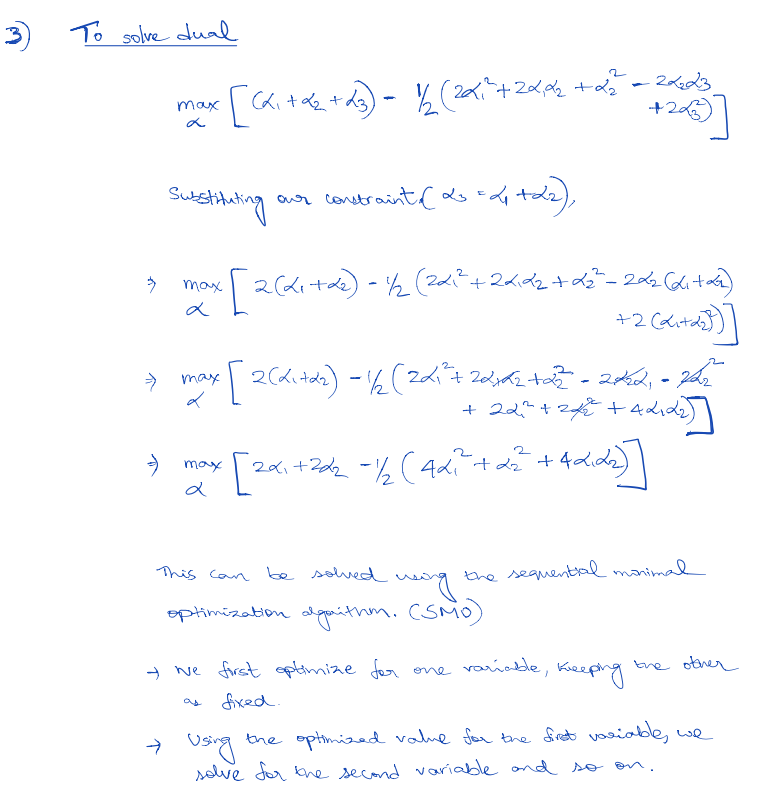 3) To solve dual
max [ (α₁ + α₂ + α₃) - 1/2 ( 2α₁² + 2α₁α₂ + α₂² - 2α₂α₃
α + 2α₃²) ]
Substituting our constraint ( α₃ = α₁ + α₂ ),
⇒ max [ 2(α₁ + α₂) - 1/2 ( 2α₁² + 2α₁α₂ + α₂² - 2α₂ (α₁ + α₂)
α + 2 (α₁+α₂)²) ]
⇒ max [ 2(α₁+α₂) - 1/2 ( 2α₁² + 2α₁α₂ + α₂² - 2α₂α₁ - 2α₂²
α + 2α₁² + 2α₂² + 4α₁α₂) ]
⇒ max [ 2α₁ + 2α₂ - 1/2 ( 4α₁² + α₂² + 4α₁α₂) ]
α
This can be solved using the sequential minimal
optimization algorithm. (SMO)
→ We first optimize for one variable, keeping the other
as fixed.
→ Using the optimized value for the first variable, we
solve for the second variable and so on.